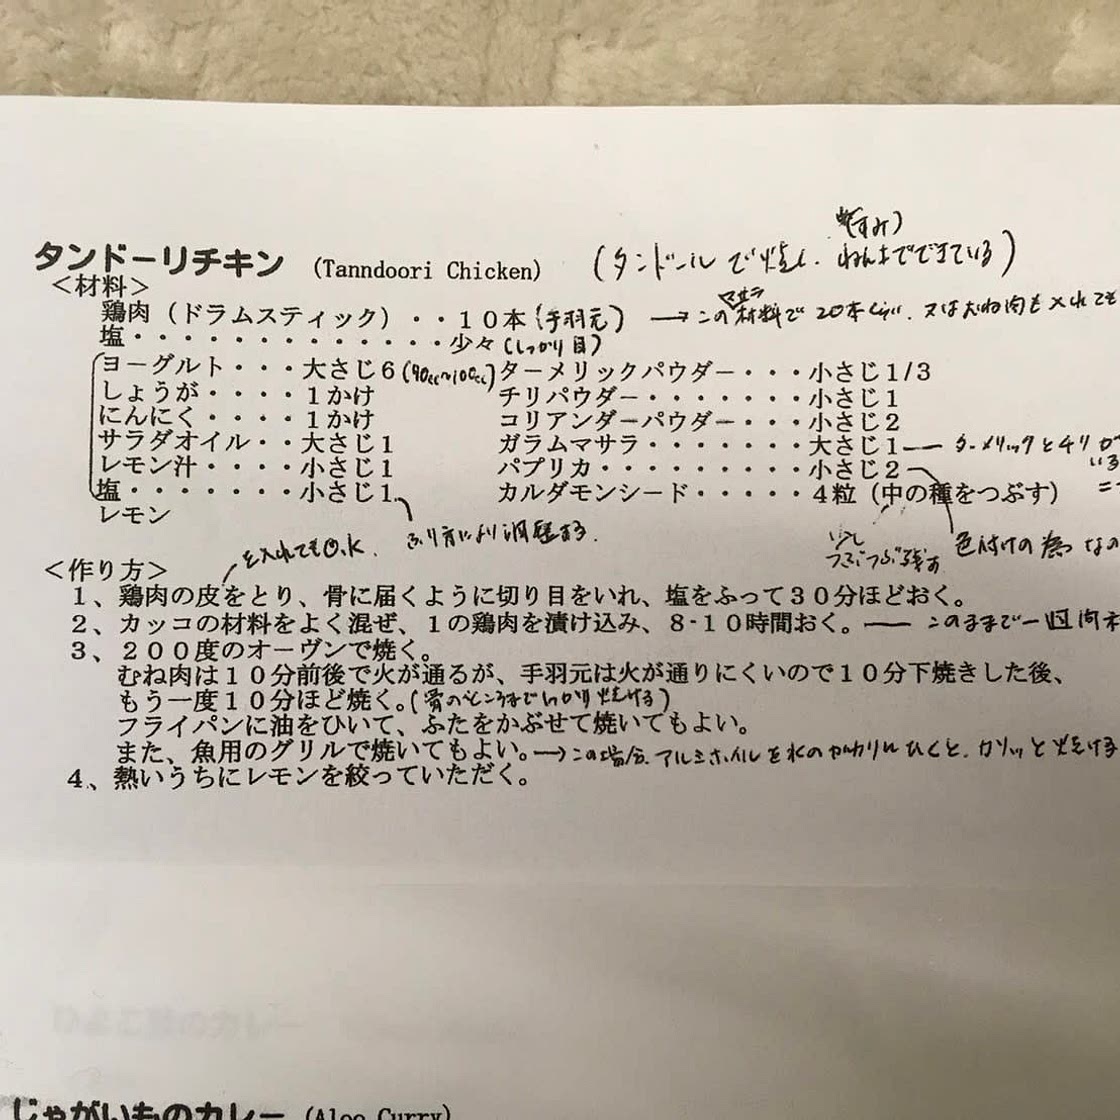 (すみ)
タンドーリチキン (Tanndoori Chicken) (タンドールで焼く. ねんどでできている)
<材料>
マサラ
鶏肉(ドラムスティック)・・10本(手羽元) → この材料で20本ぐらい. 又はむね肉も入れても
塩・・・・・・・・・・・・・少々(しっかり目)
ヨーグルト・・・大さじ6(90cc~100cc) ターメリックパウダー・・・小さじ1/3
しょうが・・・・1かけ チリパウダー・・・・・・・小さじ1
にんにく・・・・1かけ コリアンダーパウダー・・・小さじ2
サラダオイル・・大さじ1 ガラムマサラ・・・・・・・大さじ1 ― ターメリックとチリが
レモン汁・・・・小さじ1 パプリカ・・・・・・・・・小さじ2
塩・・・・・・・小さじ1 カルダモンシード・・・・・4粒(中の種をつぶす)
レモン
を入れてもO.K. ふり方により調整する.
少し
つぶつぶ残す
色付けの為
<作り方>
1、鶏肉の皮をとり、骨に届くように切り目をいれ、塩をふって30分ほどおく。
2、カッコの材料をよく混ぜ、1の鶏肉を漬け込み、8-10時間おく。 ― このままで一週間
3、200度のオーヴンで焼く。
むね肉は10分前後で火が通るが、手羽元は火が通りにくいので10分下焼きした後、
もう一度10分ほど焼く。(骨のところまでしっかり焼ける)
フライパンに油をひいて、ふたをかぶせて焼いてもよい。
また、魚用のグリルで焼いてもよい。→ この場合. アルミホイルを水のかわりにひくと. カリッと焼ける
4、熱いうちにレモンを絞っていただく。
じゃがいものカレー (Aloo Curry)